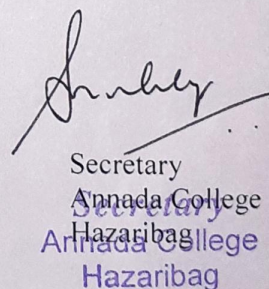 Secretary
Annada College
Hazaribag
Secretary
Annada College
Hazaribag